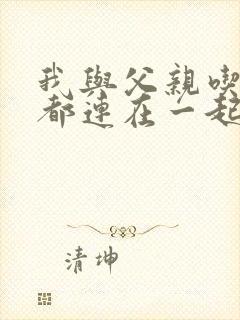 我與父親喫
都連在一起
清坤